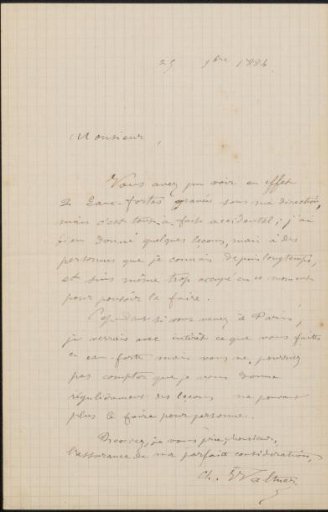 25 9bre 1884
Monsieur,
Vous avez pu voir en effet
2 Eaux-fortes gravées sous ma direction,
mais c'est tout à fait accidentel ; j'ai
bien donné quelques leçons, mais à des
personnes que je connais depuis longtemps,
et suis même trop occupé en ce moment
pour pouvoir le faire.
Cependant si vous venez à Paris,
je verrais avec intérêt ce que vous faites
en eau-forte mais vous ne pourriez
pas compter que je vous donne
régulièrement des leçons ne pouvant
plus le faire pour personne.
Recevez, je vous prie, Monsieur,
l'assurance de ma parfaite considération,
Ch. Waltner